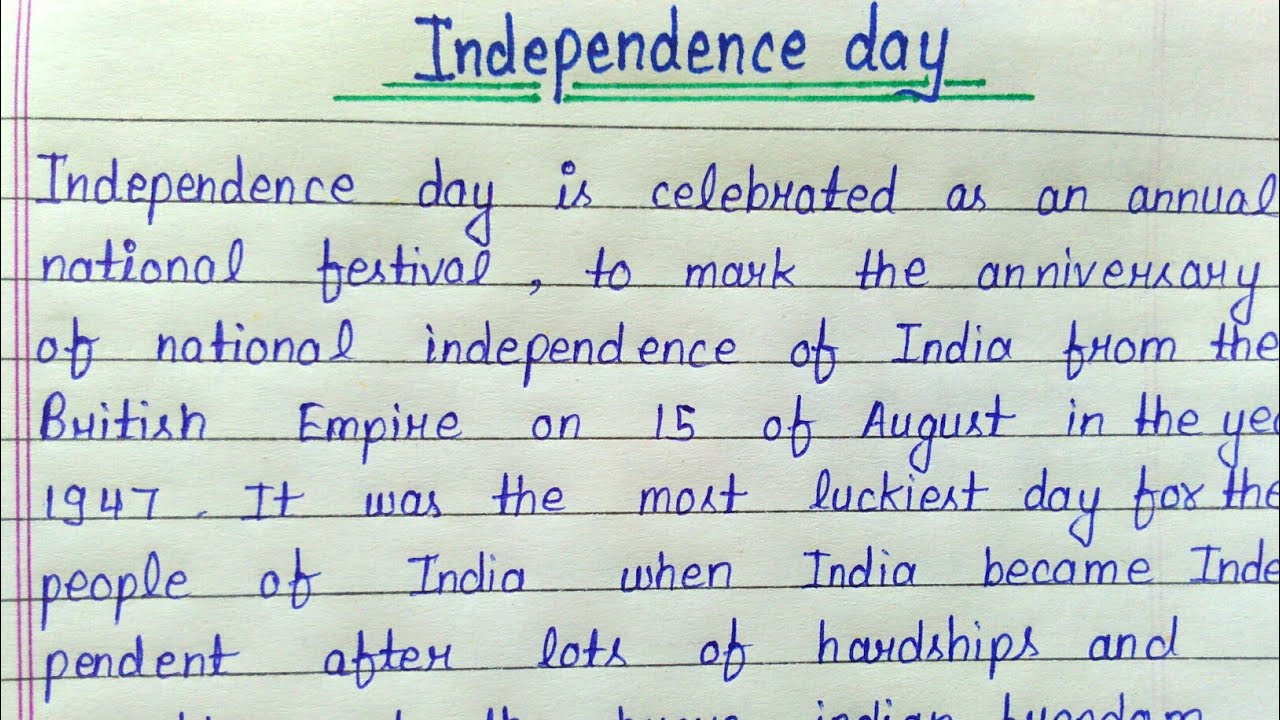 Independence day
Independence day is celebrated as an annual
national festival, to mark the anniversary
of national independence of India from the
British Empire on 15 of August in the ye
1947. It was the most luckiest day for the
people of India when India became Inde
pendent after lots of hardships and
indian